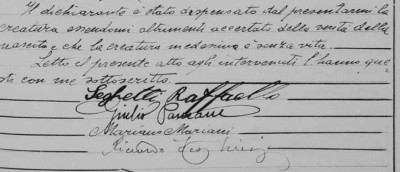 Il dichiarante è stato dispensato dal presentarmi la
creatura essendomi altrimenti accertato della verità della
nascita e che la creatura medesima è senza vita.
Letto il presente atto agli intervenuti l'hanno que
sti con me sottoscritto
Raffaello
Giulio
Mariano Mariani
Riccardo